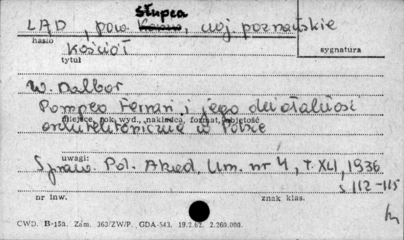 Słupca
LĄD, pow. Konin, woj. poznańskie
hasło
Kościół
sygnatura
tytuł
W. Dalbor
Pompeo Ferrari i jego działalność
miejsce, rok wyd., nakładca, format, objętość
architektoniczna w Polsce
uwagi:
Spraw. Pol. Akad. Um. nr 4, T. XLI, 1936
s 112-115
nr inw.
znak klas.
CWD. B-15a. Zam. 363/ZW/P. GDA-543. 19.2.62. 2.260.000.